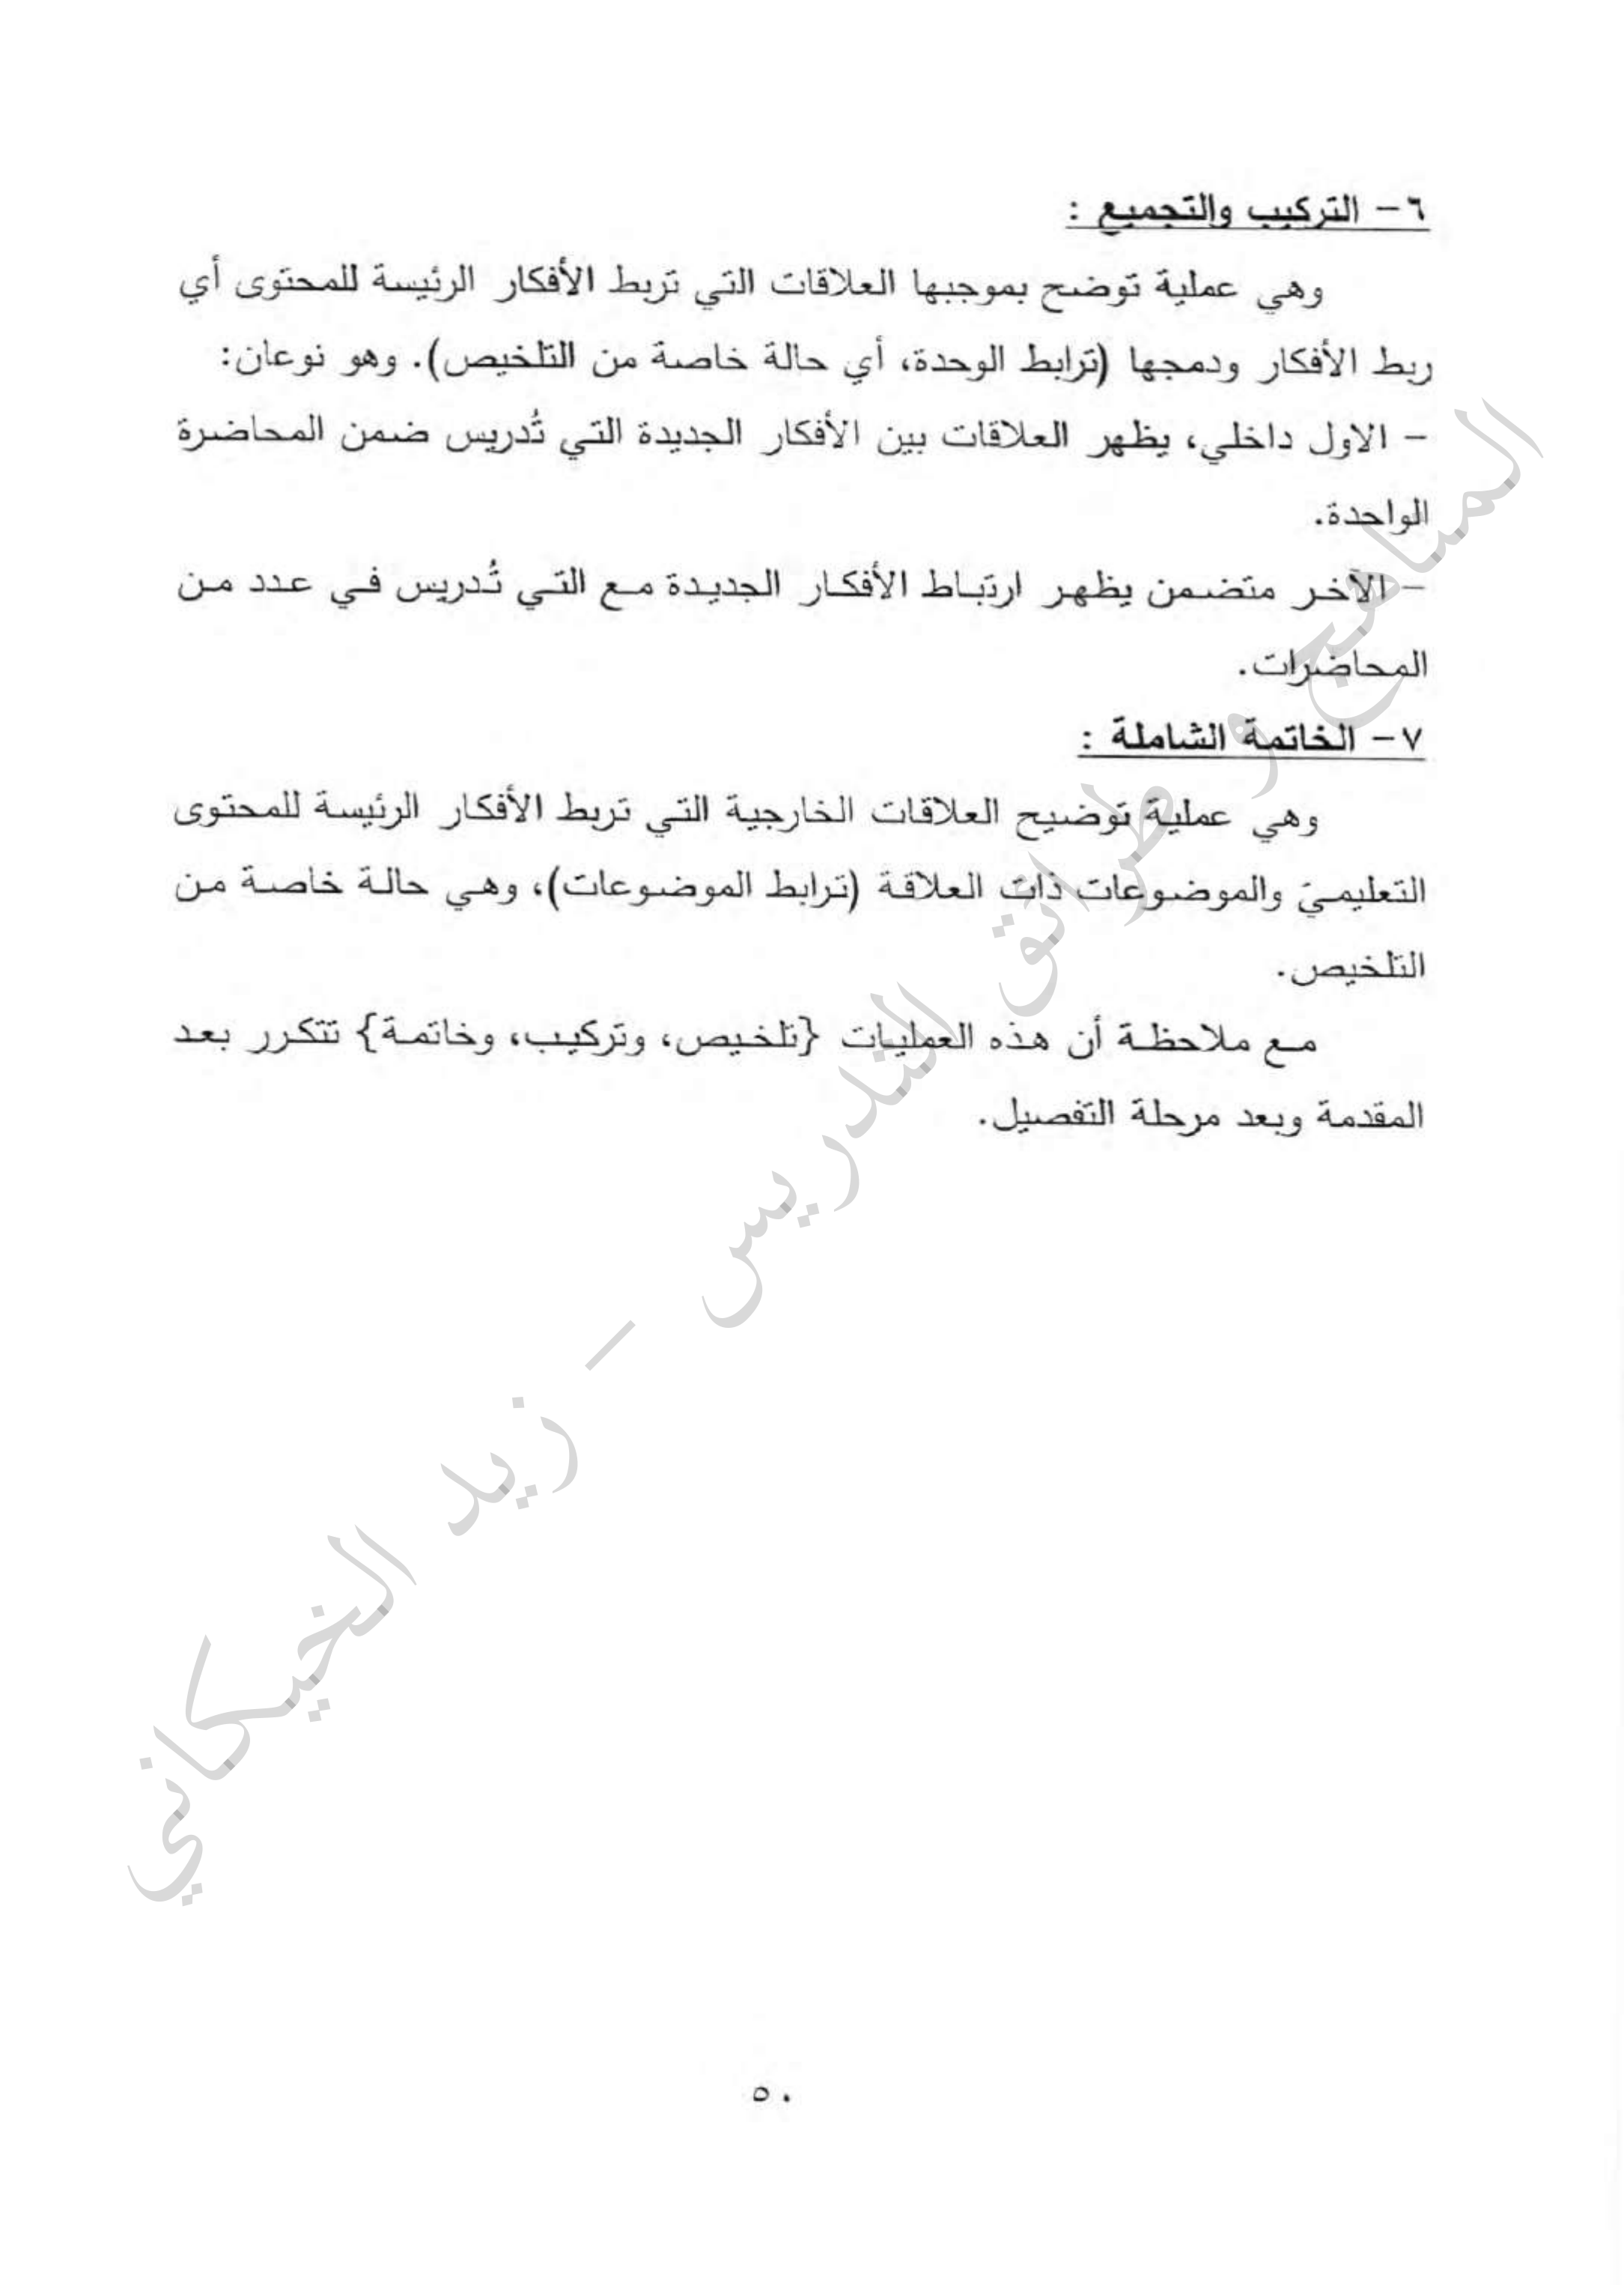 ٦- التركيب والتجميع :
وهي عملية توضح بموجبها العلاقات التي تربط الأفكار الرئيسة للمحتوى أي
ربط الأفكار ودمجها (ترابط الوحدة، أي حالة خاصة من التلخيص). وهو نوعان:
- الاول داخلي، يظهر العلاقات بين الأفكار الجديدة التي تُدريس ضمن المحاضرة
الواحدة.
- الآخر متضمن يظهر ارتباط الأفكار الجديدة مع التي تُدريس في عدد من
المحاضرات.
٧- الخاتمة الشاملة :
وهي عملية توضيح العلاقات الخارجية التي تربط الأفكار الرئيسة للمحتوى
التعليميَ والموضوعات ذات العلاقة (ترابط الموضوعات)، وهي حالة خاصة من
التلخيص.
مع ملاحظة أن هذه العمليات {تلخيص، وتركيب، وخاتمة} تتكرر بعد
المقدمة وبعد مرحلة التفصيل.
المناهج و طرائق التدريس - زيد الخيكاني
٥٠